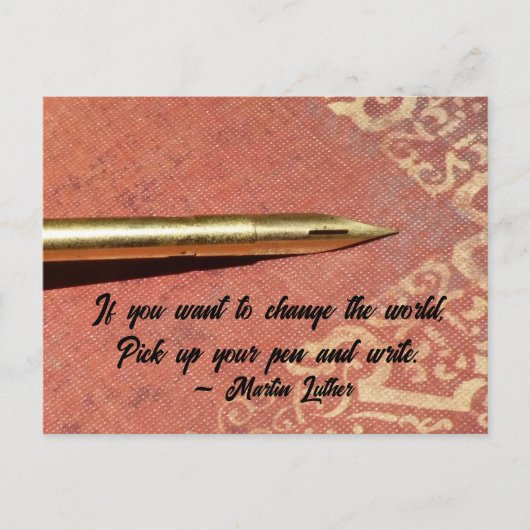 If you want to change the world,
Pick up your pen and write.
~ Martin Luther